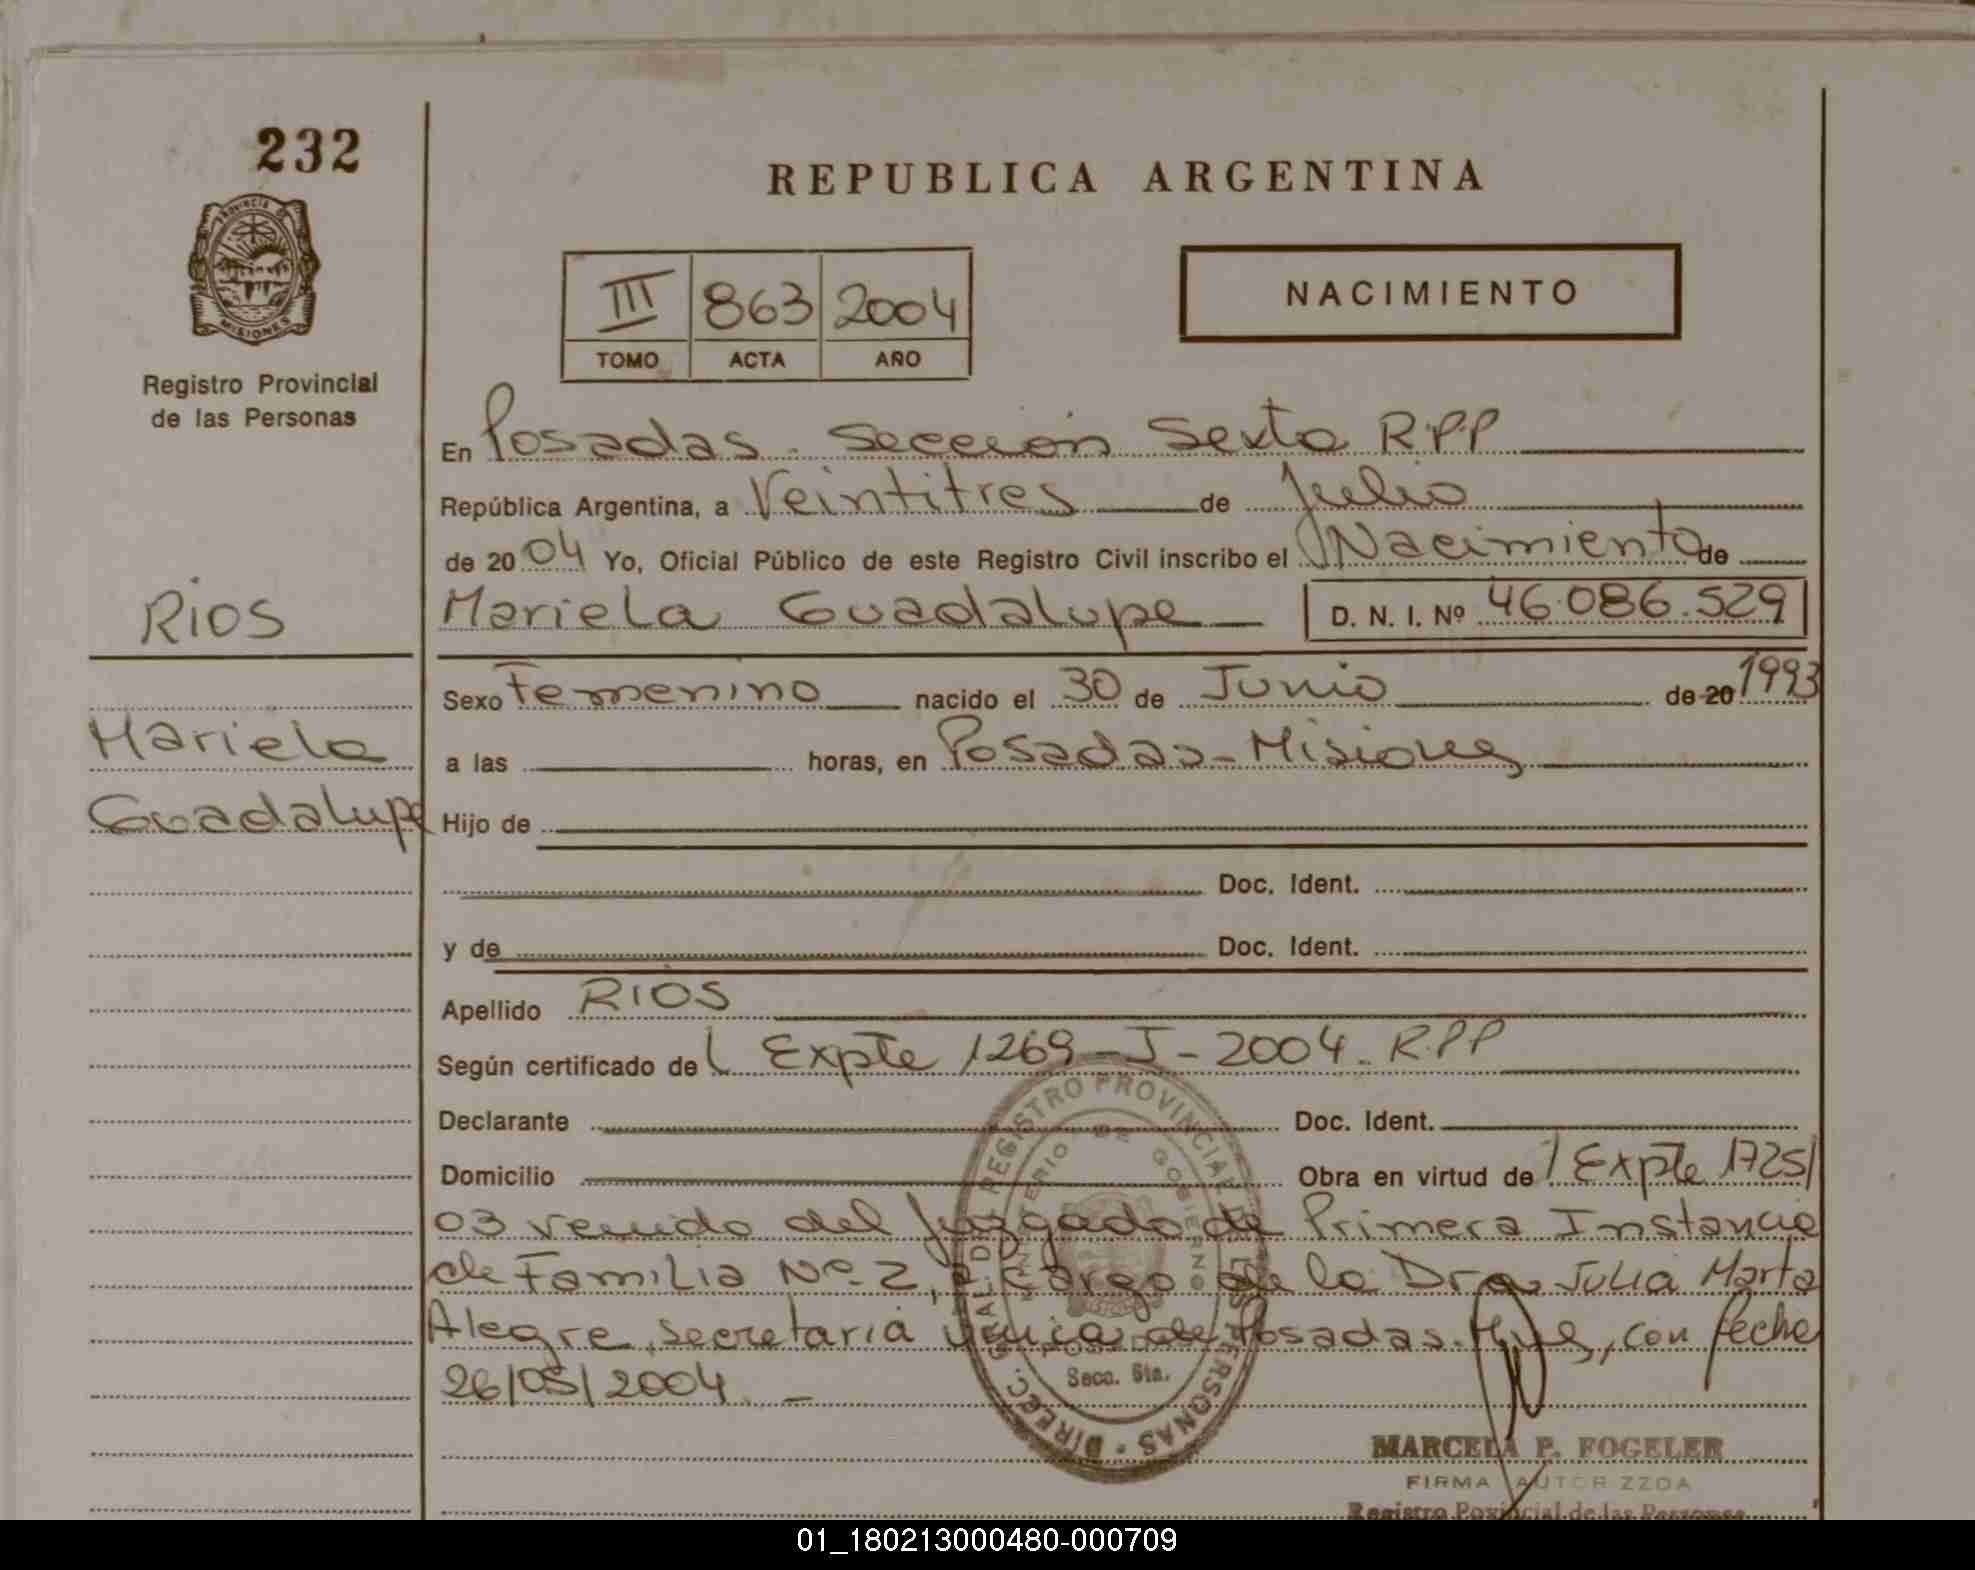 232
PROVINCIA DE
MISIONES
Registro Provincial
de las Personas
REPUBLICA ARGENTINA
III 863 2004
TOMO ACTA AÑO
NACIMIENTO
En Posadas. Sección Sexta R.P.P
República Argentina, a Veintitres de Julio
de 2004 Yo, Oficial Público de este Registro Civil inscribo el Nacimiento de
RIOS
Mariela Guadalupe D. N. I. Nº 46.086.529
Sexo Femenino nacido el 30 de Junio de 20 1993
Mariela
a las horas, en Posadas-Misiones
Guadalupe
Hijo de
Doc. Ident.
y de Doc. Ident.
Apellido RIOS
Según certificado de Expte 1269-J-2004. R.P.P
Declarante Doc. Ident.
Domicilio Obra en virtud de Expte 1725/
03 venido del Juzgado de Primera Instancia
de Familia Nº 2, a cargo de la Dra Julia Marta
Alegre, Secretaria única de Posadas. Mnes, con fecha
26/05/2004. -
DIRECC. GRAL. DEL REGISTRO PROVINCIAL DE LAS PERSONAS
MINISTERIO DE GOBIERNO
POSADAS
Secc. 6ta.
MARCELA P. FOGELER
FIRMA AUTORIZZDA
Registro Povincial de las Personas
01_180213000480-000709